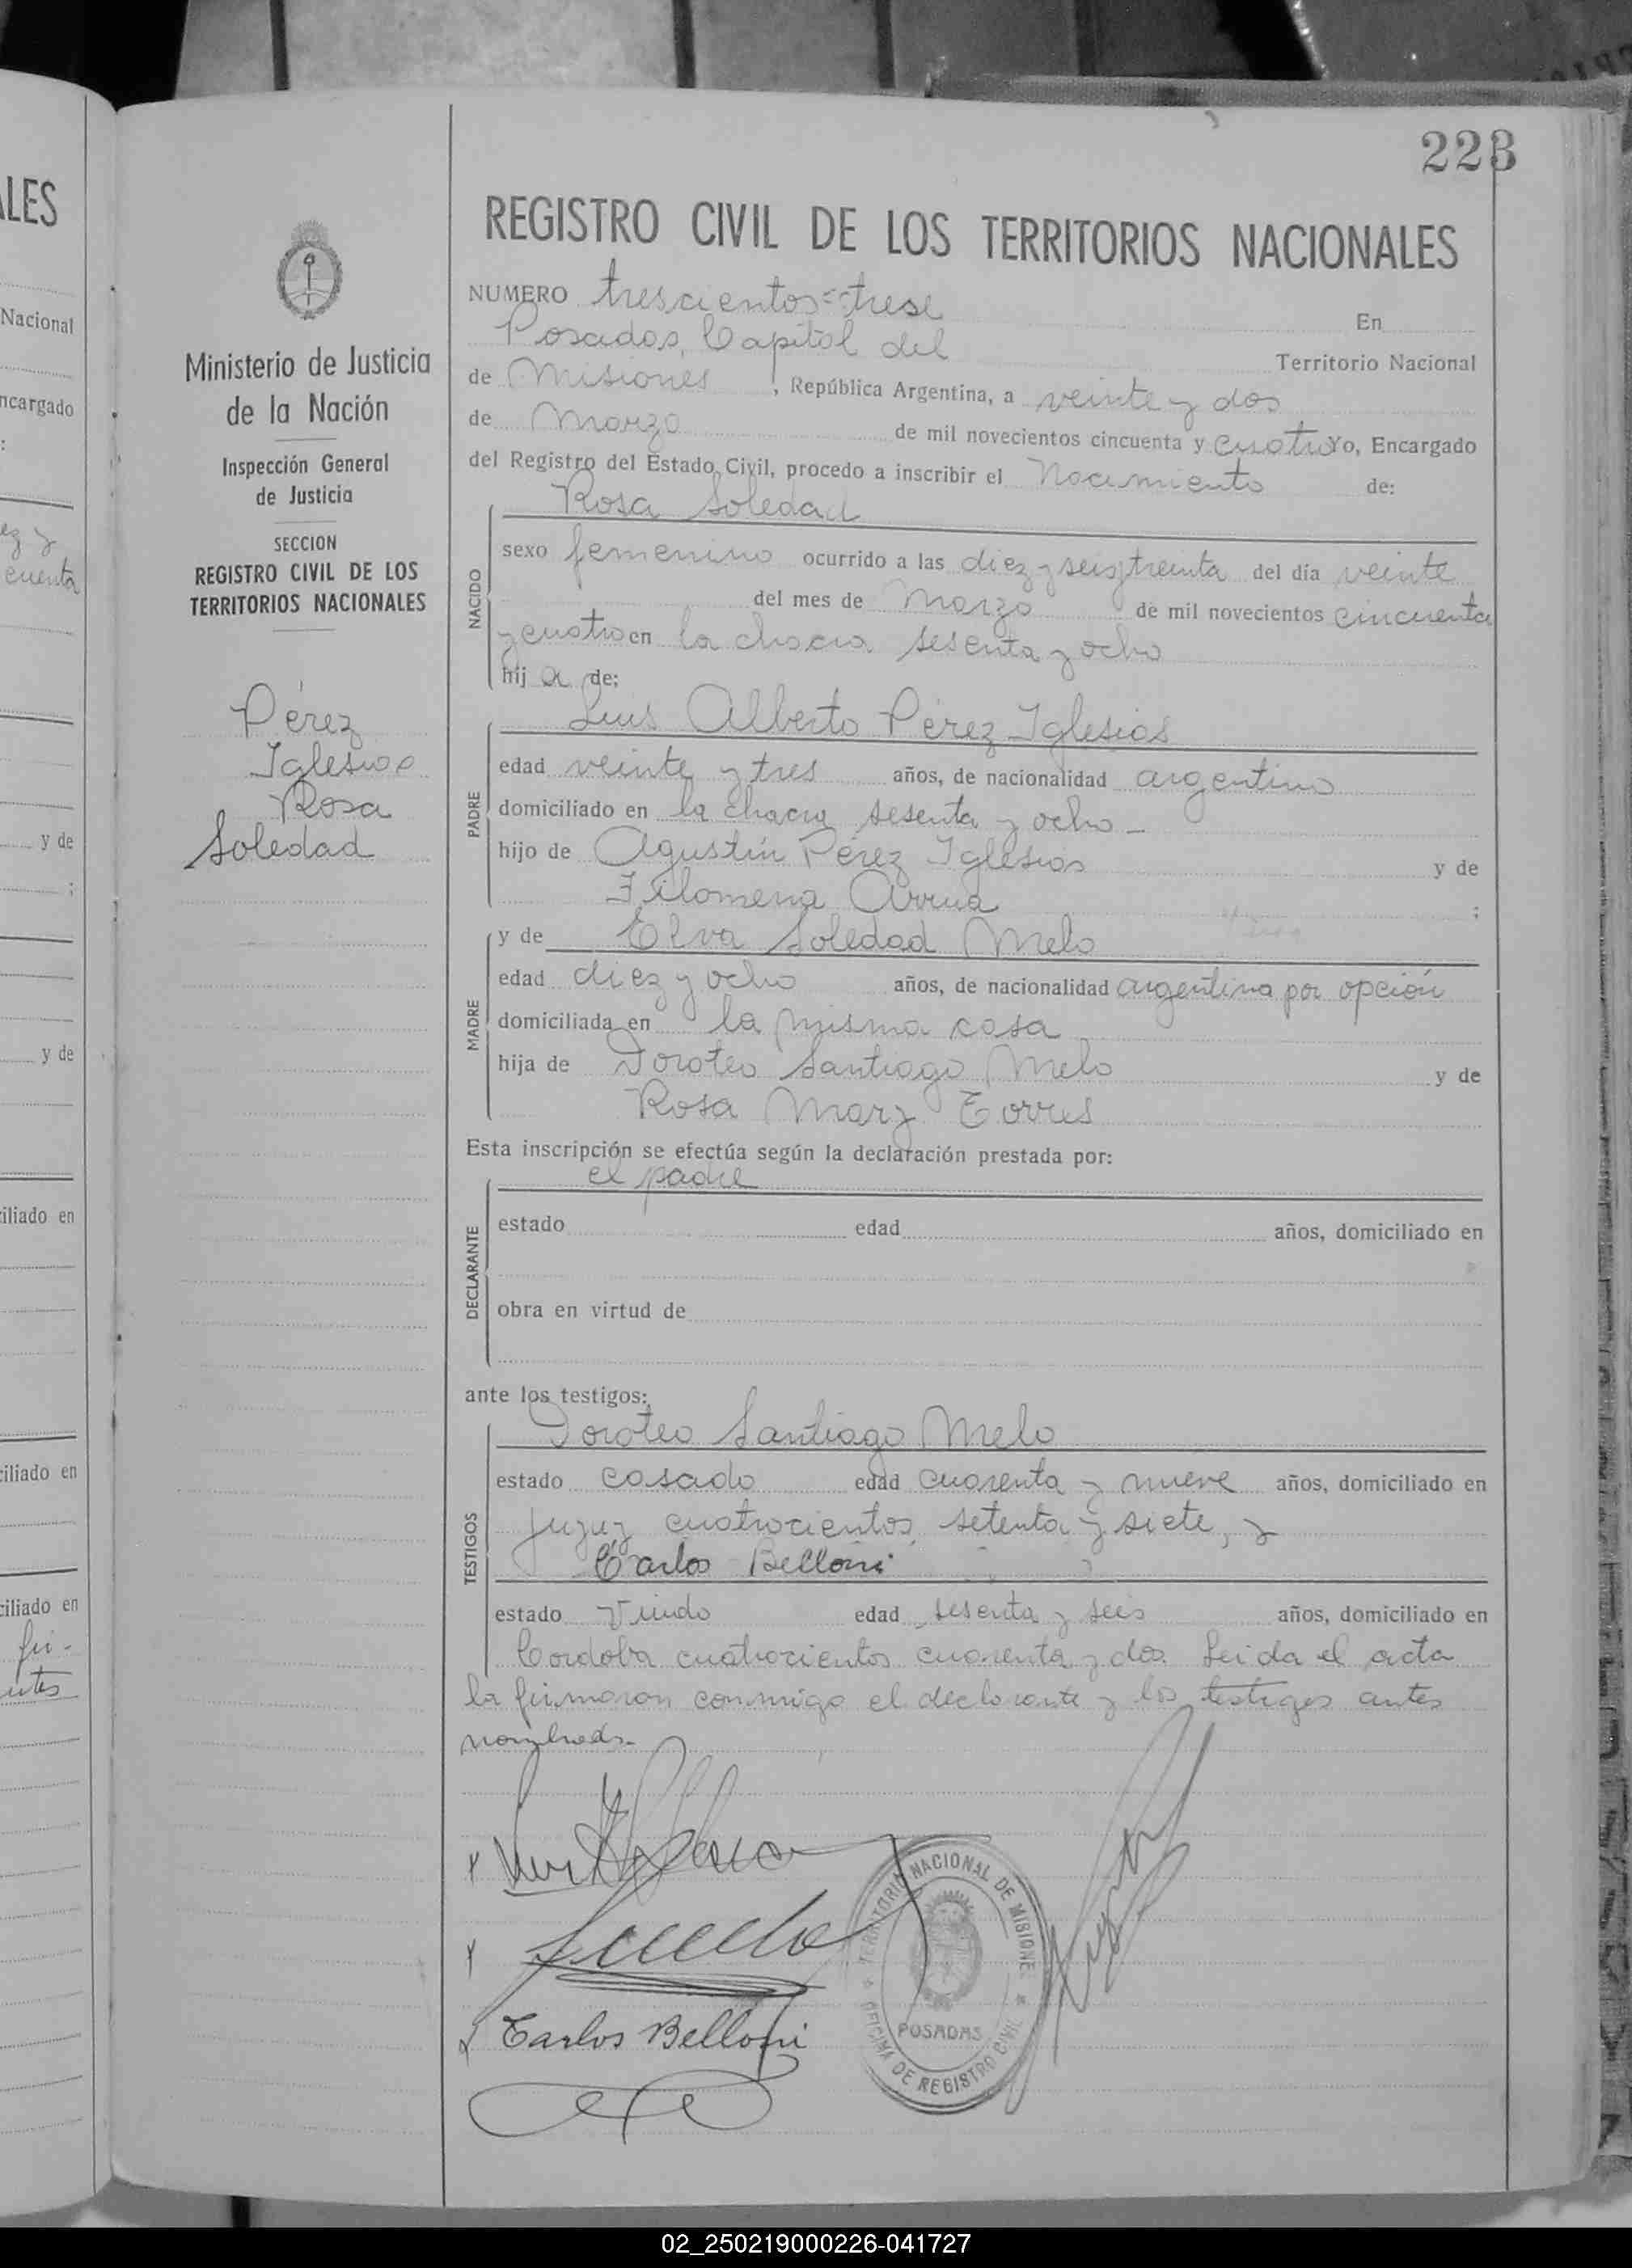 LES
Nacional
ncargado
:
ez y
cuenta
y de
;
y de
iliado en
ciliado en
ciliado en
fir-
ntes
223
Ministerio de Justicia
de la Nación
Inspección General
de Justicia
SECCION
REGISTRO CIVIL DE LOS
TERRITORIOS NACIONALES
Pérez
Iglesias
Rosa
Soledad
REGISTRO CIVIL DE LOS TERRITORIOS NACIONALES
NUMERO trescientos trese En
Posadas, Capital del Territorio Nacional
de Misiones, República Argentina, a veinte y dos
de Marzo de mil novecientos cincuenta y cuatro Yo, Encargado
del Registro del Estado Civil, procedo a inscribir el Nacimiento de:
Rosa Soledad
NACIDO
sexo femenino ocurrido a las diez y seis, treinta del día veinte
del mes de Marzo de mil novecientos cincuenta
y cuatro en la chacra sesenta y ocho
hij a de:
Luis Alberto Pérez Iglesias
PADRE
edad veinte y tres años, de nacionalidad argentino
domiciliado en la chacra sesenta y ocho -
hijo de Agustín Pérez Iglesias y de
Filomena Arrua ;
y de Elva Soledad Melo
MADRE
edad diez y ocho años, de nacionalidad argentina por opción
domiciliada en la misma casa
hija de Doroteo Santiago Melo y de
Rosa Mary Torres
Esta inscripción se efectúa según la declaración prestada por:
el padre
DECLARANTE
estado edad años, domiciliado en
obra en virtud de
ante los testigos:
Doroteo Santiago Melo
TESTIGOS
estado casado edad cuarenta y nueve años, domiciliado en
Jujuy cuatrocientos setenta y siete, y
Carlos Belloni
estado viudo edad sesenta y seis años, domiciliado en
Cordoba cuatrocientos cuarenta y dos. Leida el acta
la firmaron conmigo el declarante y los testigos antes
nombrads.-
Carlos Belloni
TERRITORIO NACIONAL DE MISIONES
POSADAS
OFICINA DE REGISTRO CIVIL
02_250219000226-041727